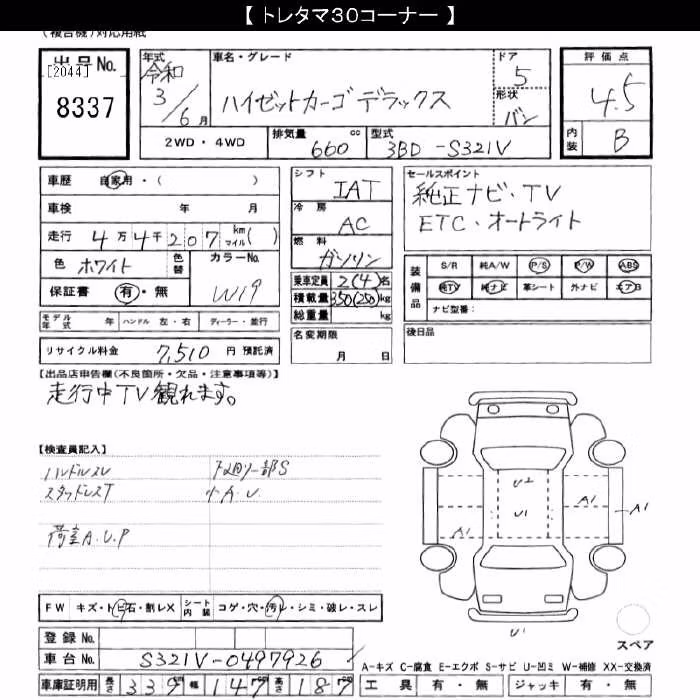 【 トレタマ30コーナー 】
(複合機)対応用紙
出品No.
[2044]
8337
年式
令和
3/6月
車名・グレード
ハイゼットカーゴ デラックス
ドア
5
形状
バン
評価点
4.5
内装
B
2WD・4WD
排気量 660 cc
型式 3BD-S321V
車歴 自家用・( )
車検 年 月
走行 4万4千207 km マイル( )
色 ホワイト 色替
カラーNo.
W19
保証書 有・無
モデル年式 年 ハンドル 左・右 ディーラー・並行
リサイクル料金 7,510 円 預託済
シフト
IAT
冷房
AC
燃料
ガソリン
乗車定員 2(4)名
積載量 350(250)kg
総重量 kg
名変期限
月 日
セールスポイント
純正ナビ・TV
ETC・オートライト
装備品
S/R 純A/W P/S P/W ABS
純TV 純ナビ 革シート 外ナビ エアB
ナビ型番:
後日品
【出品店申告欄(不良箇所・欠品・注意事項等)】
走行中TV観れます。
【検査員記入】
ハンドルスレ
下廻り一部S
スタッドレスT
小A.U.
荷室A.U.P
U2
U1
A1
A1
A1
U1
FW キズ・トビ石・割レX シート内装 コゲ・穴・汚レ・シミ・破レ・スレ
登録No.
車台No. S321V-0497926
スペア
A-キズ C-腐食 E-エクボ S-サビ U-凹ミ W-補修 XX-交換済
車庫証明用 長さ 339 幅 147 高さ 187
工具 有・無 ジャッキ 有・無